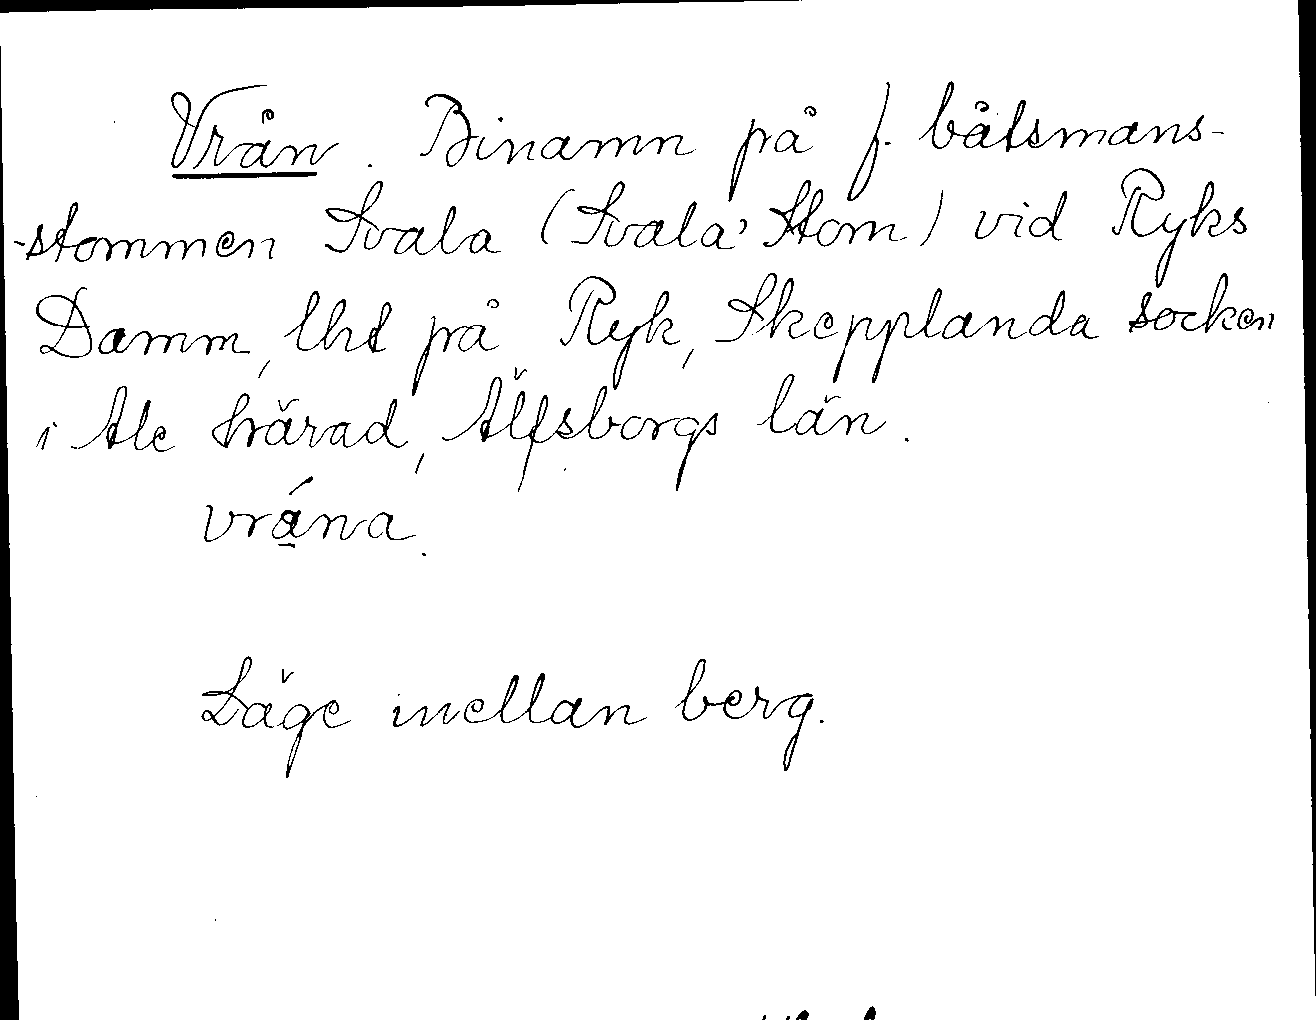 Vrån. Binamn på f. båtsmans-
-stommen Svala (Svala' Stom) vid Ryks
Damm, lht på Ryk, Skepplanda socken
i Ale härad, Älfsborgs län.
vrána.
Läge mellan berg.